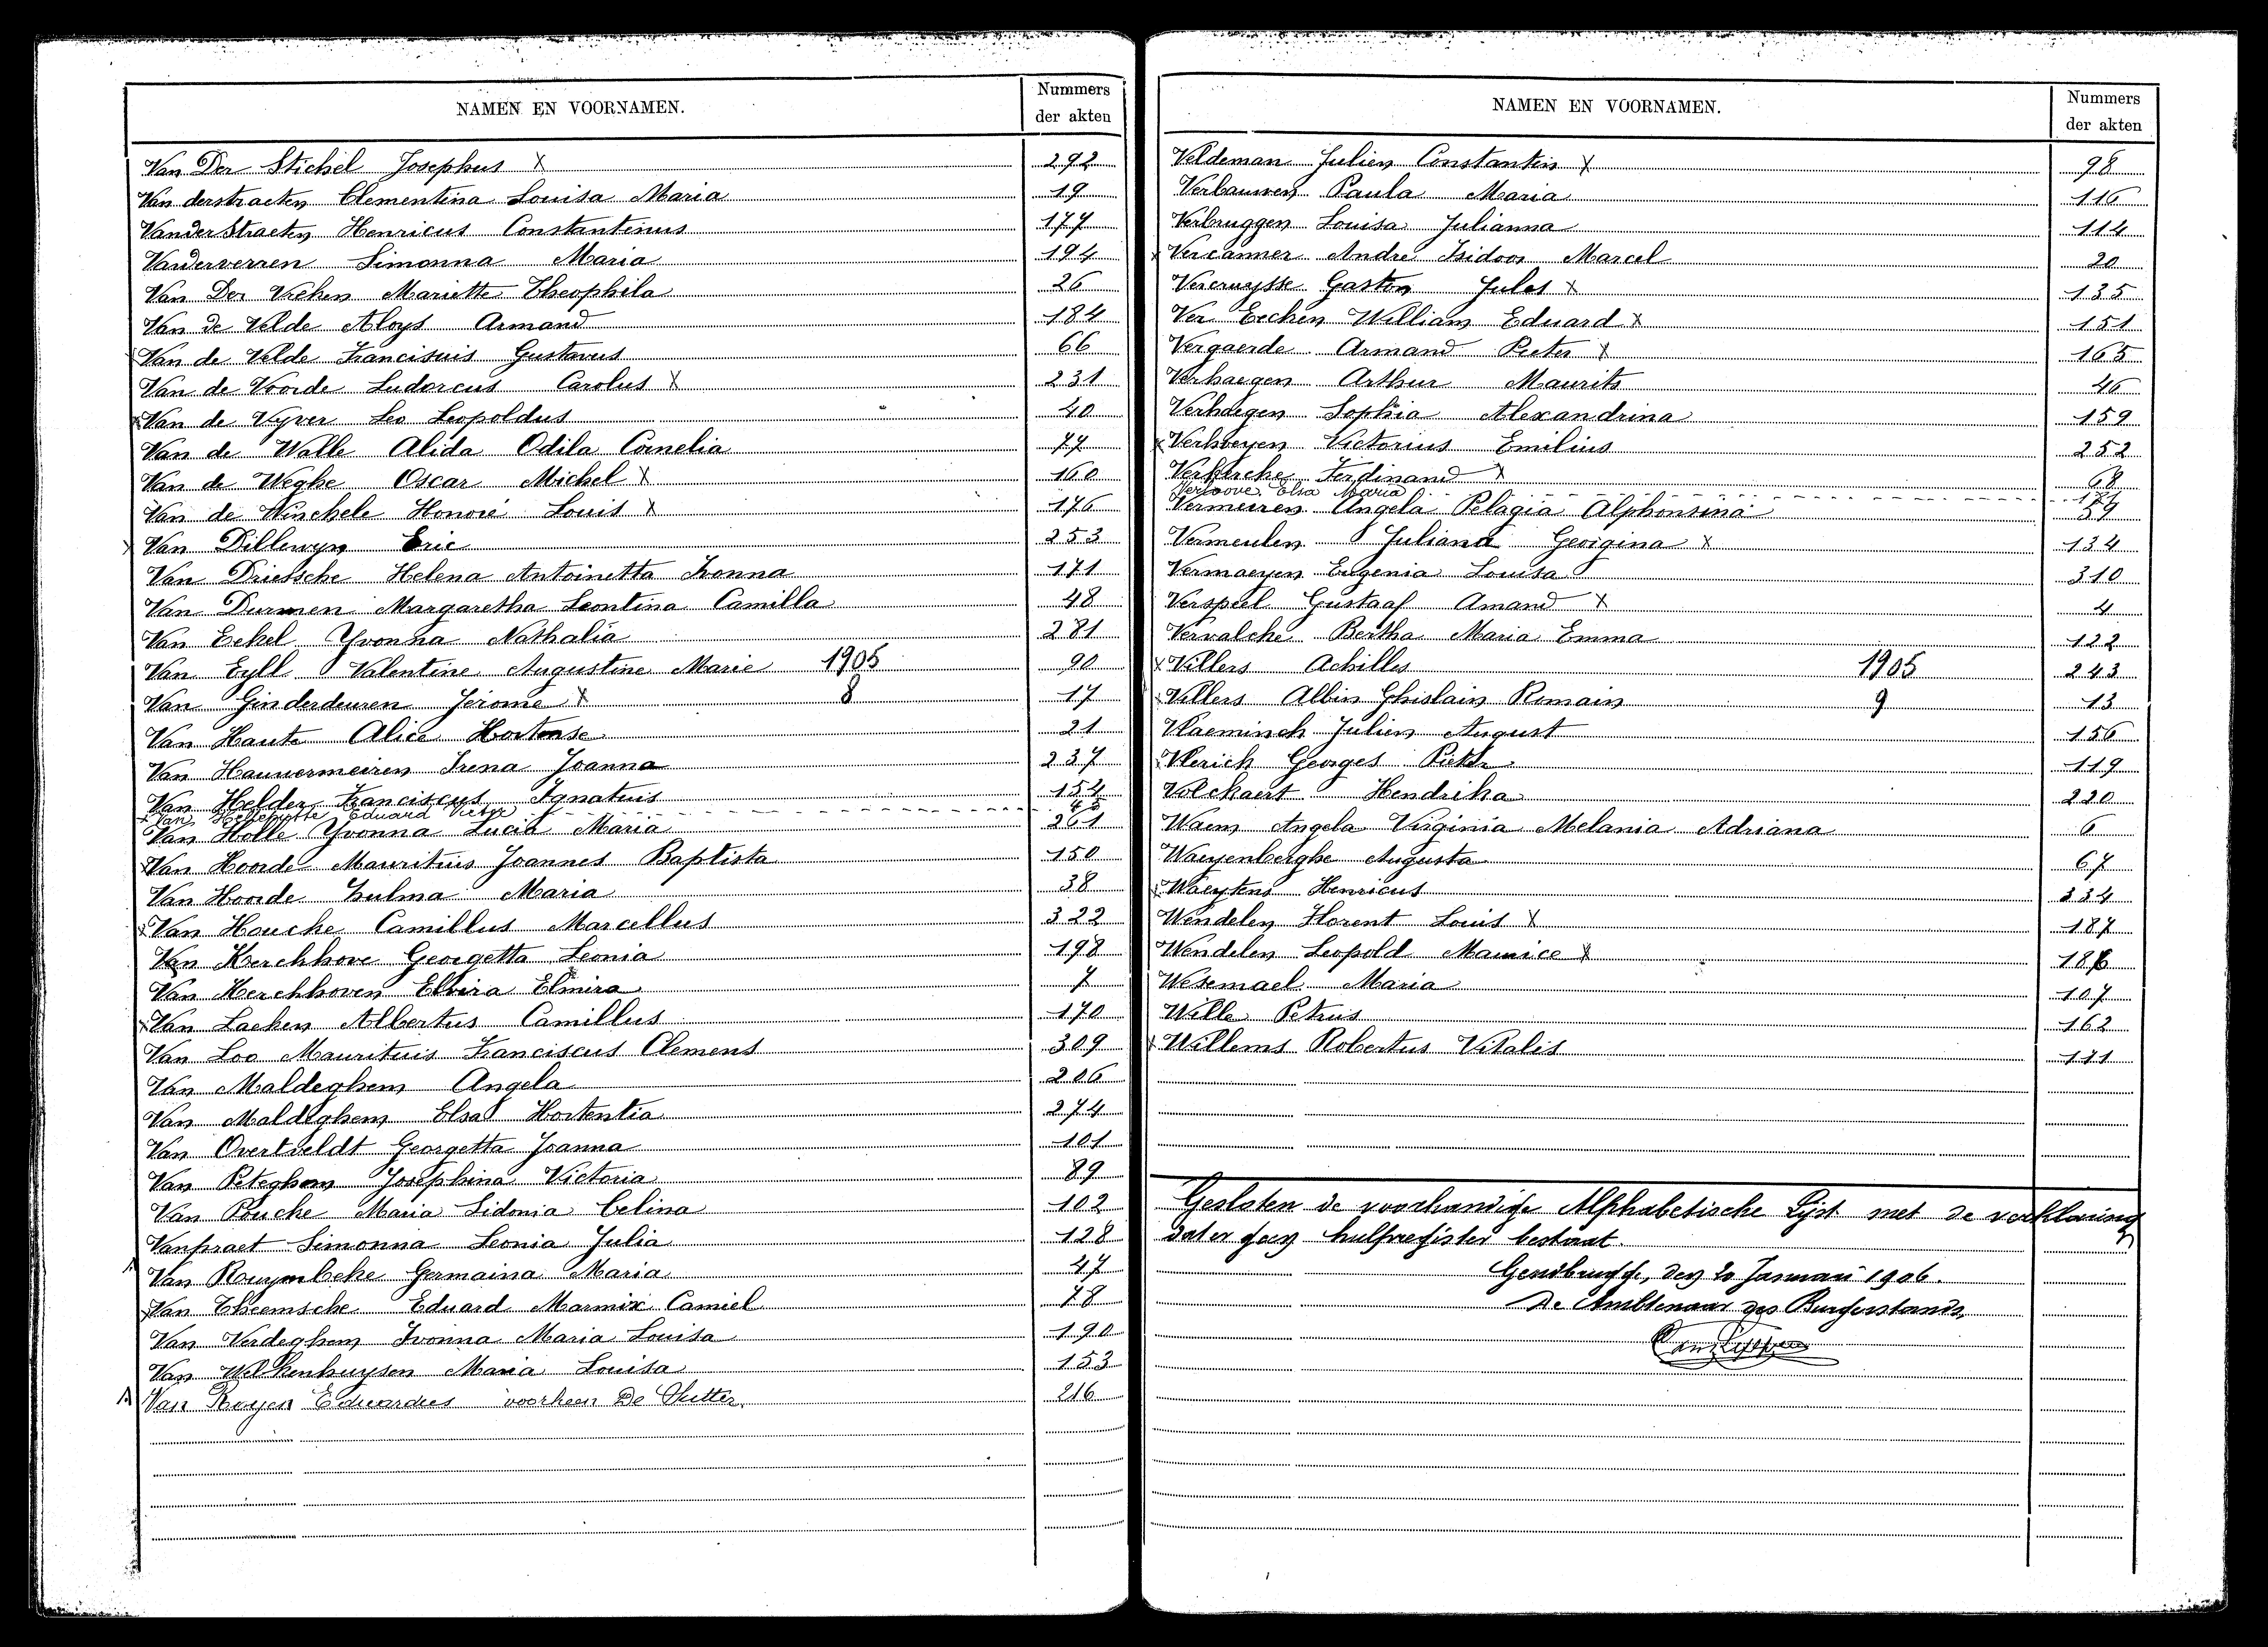 NAMEN EN VOORNAMEN. Nummers der akten
Van Der Stichel Josephus X 292
Van derstraeten Clementina Louisa Maria 19
Vanderstraeten Henricus Constantinus 177
Vanderverren Simonna Maria 194
Van Der Vieken Mariette Theophila 26
Van de Velde Aloys Armand 184
Van de Velde Franciscus Gustavus 66
Van de Voorde Ludovicus Carolus X 231
x Van de Vyver Leo Leopoldus 40
Van de Walle Alida Odila Cornelia 77
Van de Weghe Oscar Michel X 160
Van de Winckele Honoré Louis X 176
x Van Dillewyn Eric 253
Van Driessche Helena Antoinetta Ivonna 171
Van Durmen Margaretha Leontina Camilla 48
Van Eekel Yvonna Nathalia 281
Van Eyll Valentine Augustine Marie 1905 90
Van Ginderdeuren Jerome X 8 17
Van Haute Alice Hortense 21
Van Hauwermeiren Irena Joanna 237
Van Helder Franciscus Ignatius 154
x Van Helleputte Eduard Victor 45
Van Holle Yvonna Lucia Maria 261
x Van Hoorde Mauritius Joannes Baptista 150
Van Hoorde Zulma Maria 38
x Van Houcke Camillus Marcellus 322
Van Kerckhove Georgetta Leonia 198
Van Kerckhoven Elvira Elmira 7
x Van Laeken Albertus Camillus 170
Van Loo Mauritius Franciscus Clemens 309
Van Maldeghem Angela 206
Van Maldeghem Elsa Hortentia 274
Van Overtveldt Georgetta Joanna 101
Van Peteghem Josephina Victoria 89
Van Poucke Maria Sidonia Celina 102
Vanpraet Simonna Leonia Julia 128
Van Rouymbeke Germaina Maria 47
x Van Theemsche Eduard Marnix Camiel 78
Van Verdeghem Ivonna Maria Louisa 190
Van Welkenhuysen Maria Louisa 153
Van Royen Eduardus voorheen De Sutter. 216
NAMEN EN VOORNAMEN. Nummers der akten
Veldeman Julien Constantin X 98
Verbauwen Paula Maria 116
Verbruggen Louisa Julianna 114
x Vercammer André Isidoor Marcel 20
Vercruysse Gaston Jules X 135
Ver Eecken William Eduard X 151
Vergaerde Armand Pieter X 165
Verhaegen Arthur Maurits 46
Verhaegen Sophia Alexandrina 159
x Verhoeyen Victorius Emilius 252
Verkercke Ferdinand X 68
Verloove Elsa Maria
Vermeiren Angela Pelagia Alphonsina 59
Vermeulen Juliana Georgina X 134
Vermaeyen Eugenia Louisa 310
Verspeel Gustaaf Amand X 4
Vervalcke Bertha Maria Emma 122
x Villers Achilles 1905 243
x Villers Albin Ghislain Romain 9 13
Vlaeminck Julien August 156
Vlerick Georges Pieter 119
Volckaert Hendrika 220
Waem Angela Virginia Melania Adriana 6
Waeyenberghe Augusta 67
x Waeytens Henricus 334
Wendelen Florent Louis X 187
Wendelen Leopold Maurice X 186
Wesemael Maria 107
Wille Petrus 162
x Willems Robertus Vitalis 111
Gesloten de voorhandige Alphabetische Lijst met de verklaring
dat er geen hulpregister bestaat.
Gendbrugge, den 20 Januari 1906.
De Ambtenaar des Burgerstands,